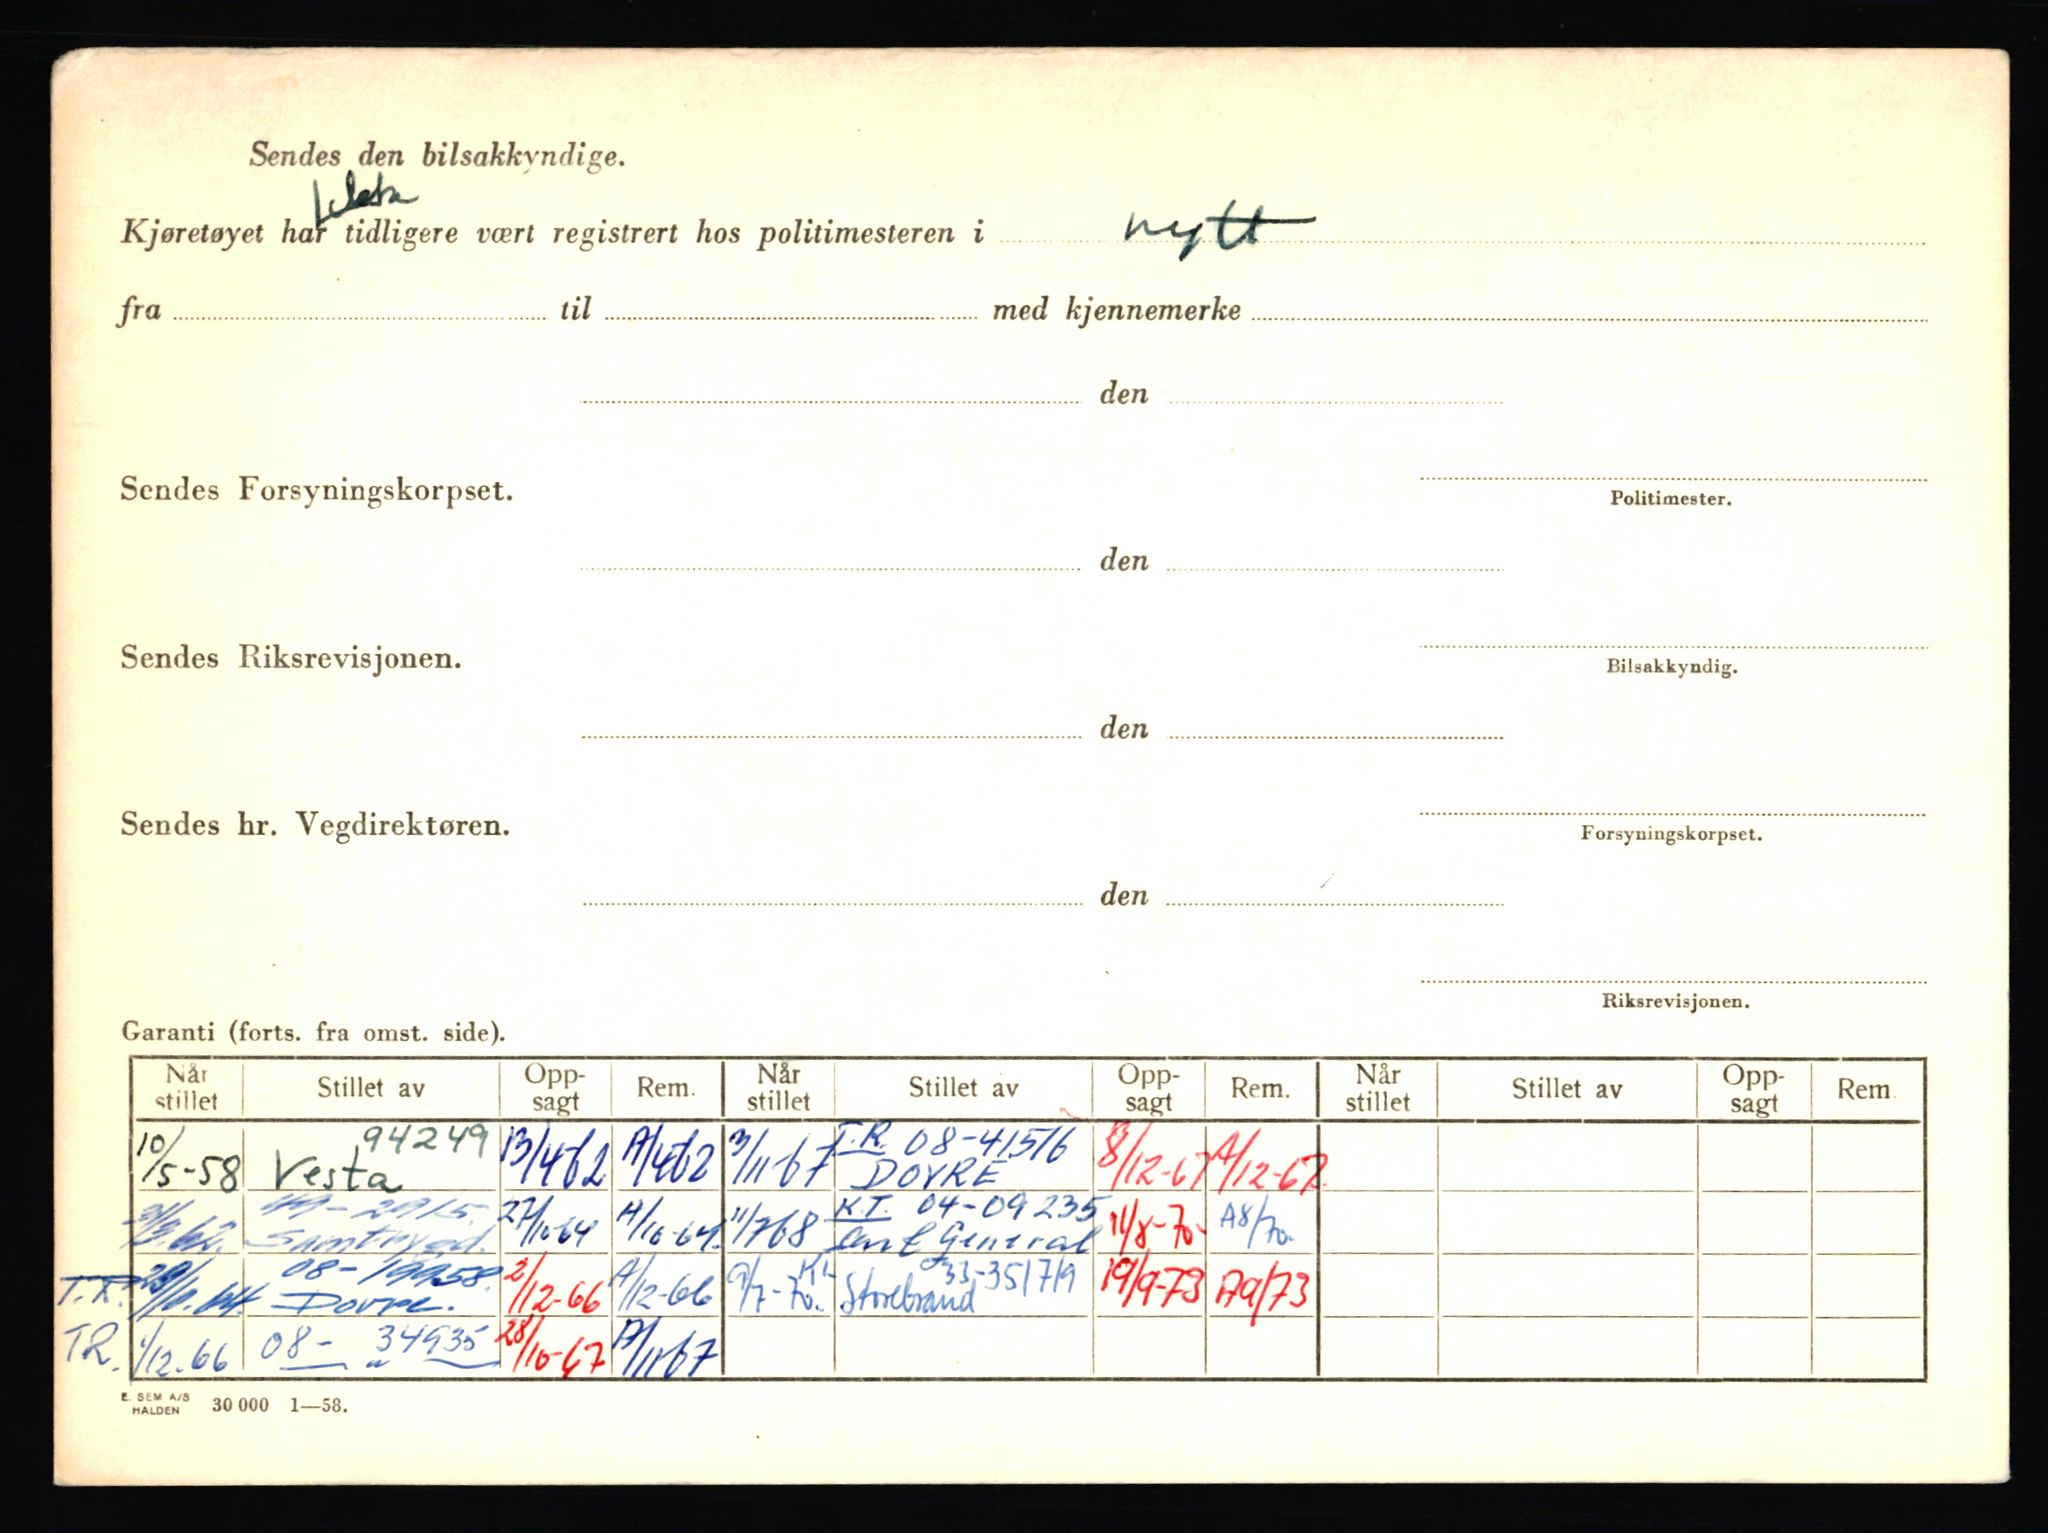 Sendes den bilsakkyndige.
ikke
Kjøretøyet har tidligere vært registrert hos politimesteren i nytt
fra til med kjennemerke
den
Sendes Forsyningskorpset.
Politimester.
den
Sendes Riksrevisjonen.
Bilsakkyndig.
den
Sendes hr. Vegdirektøren.
Forsyningskorpset.
den
Riksrevisjonen.
Garanti (forts. fra omst. side).
Når stillet Stillet av Opp-sagt Rem. Når stillet Stillet av Opp-sagt Rem. Når stillet Stillet av Opp-sagt Rem
10/5-58 94249 Vesta 13/4-62 A/4-62 3/11-67 T.R. 08-41516 DOVRE 8/12-67 A/12-67
49-2915. Samtrygd. 27/10-64 A/10-64. 11/7-68 K.T. 04-09235 General 11/8-70- A8/70.
T.R. 08-19958. Dovre. 2/12-66 A/12-66 9/7-70. Kl 33-351719 Storebrand 19/9-73 A9/73
TR. 1/12-66 08- 34935 28/10-67 A/11-67
E. SEM A/S
HALDEN 30 000 1—58.